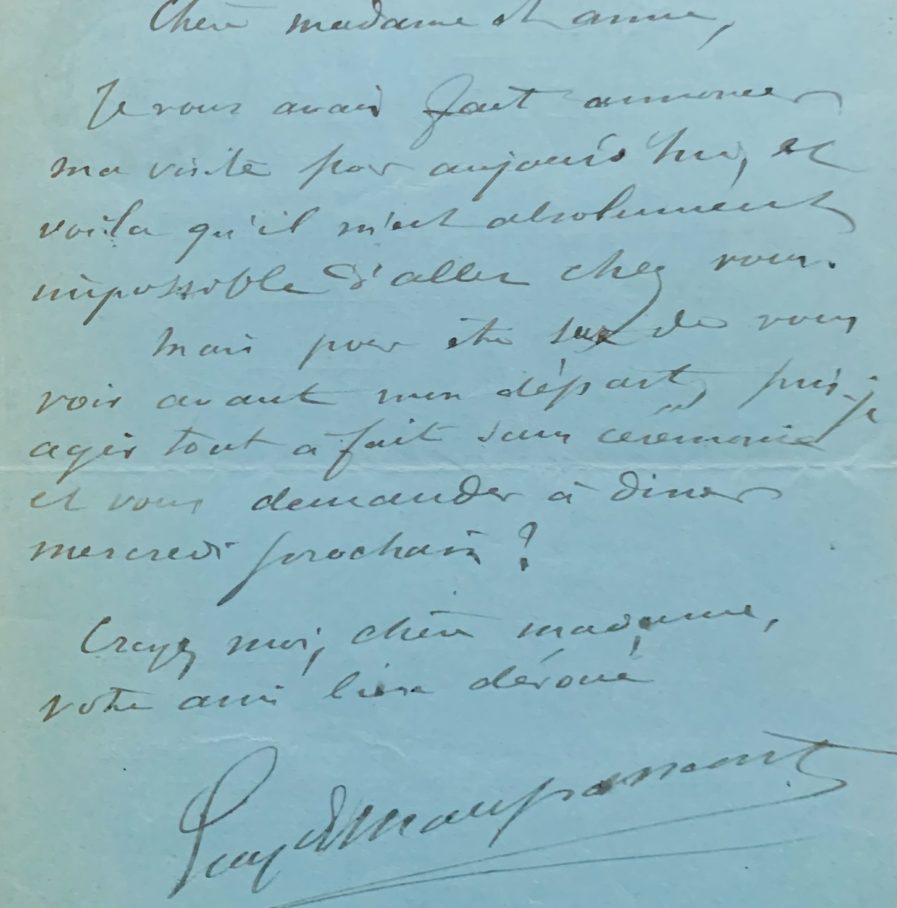 Chère madame et amie,
Je vous avais fait annoncer
ma visite pour aujourd'hui, et
voilà qu'il m'est absolument
impossible d'aller chez vous.
Mais pour être sur de vous
voir avant mon départ, puis-je
agir tout à fait sans cérémonie
et vous demander à diner
mercredi prochain ?
Croyez moi, chère madame,
votre ami bien dévoué
Guy de Maupassant